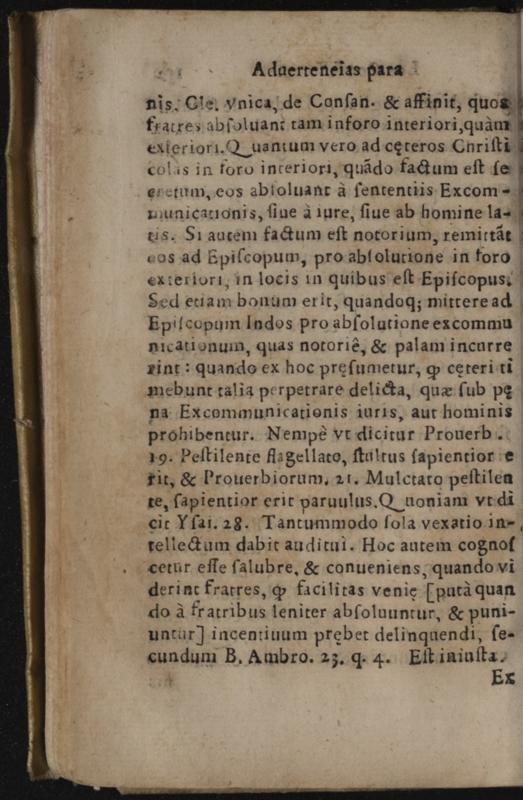 Aduertencias para
nis. Cle. vnica, de Conſan. & affinit, quos
fratres abſoluant tam inforo interiori,quàm
exteriori.Quantum vero ad cęteros Chriſti
colas in foro interiori, quãdo factum eſt ſe
cretum, eos abſoluant à ſententiis Excom-
municationis, ſiue à iure, ſiue ab homine la-
tis. Si autem factum eſt notorium, remittãt
eos ad Epiſcopum, pro abſolutione in foro
exteriori, in locis in quibus eſt Epiſcopus.
Sed etiam bonum erit, quandoq; mittere ad
Epiſcopum Indos pro abſolutione excommu
nicationum, quas notoriê, & palam incurre
rint : quando ex hoc pręſumetur, ꝙ cęteri ti
mebunt talia perpetrare delicta, quæ ſub pę
na Excommunicationis iuris, aut hominis
prohibentur. Nempè vt dicitur Prouerb .
19. Peſtilente flagellato, ſtultus ſapientior e
rit, & Prouerbiorum. 21. Mulctato peſtilen
te, ſapientior erit paruulus.Quoniam vt di
cit Yſai. 28. Tantummodo ſola vexatio in-
tellectum dabit auditui. Hoc autem cognoſ
cetur eſſe ſalubre, & conueniens, quando vi
derint fratres, ꝙ facilitas venię [putà quan
do à fratribus leniter abſoluuntur, & puni-
untur] incentiuum prębet delinquendi, ſe-
cundum B. Ambro. 23. q. 4. Eſt iniuſta.
Ex